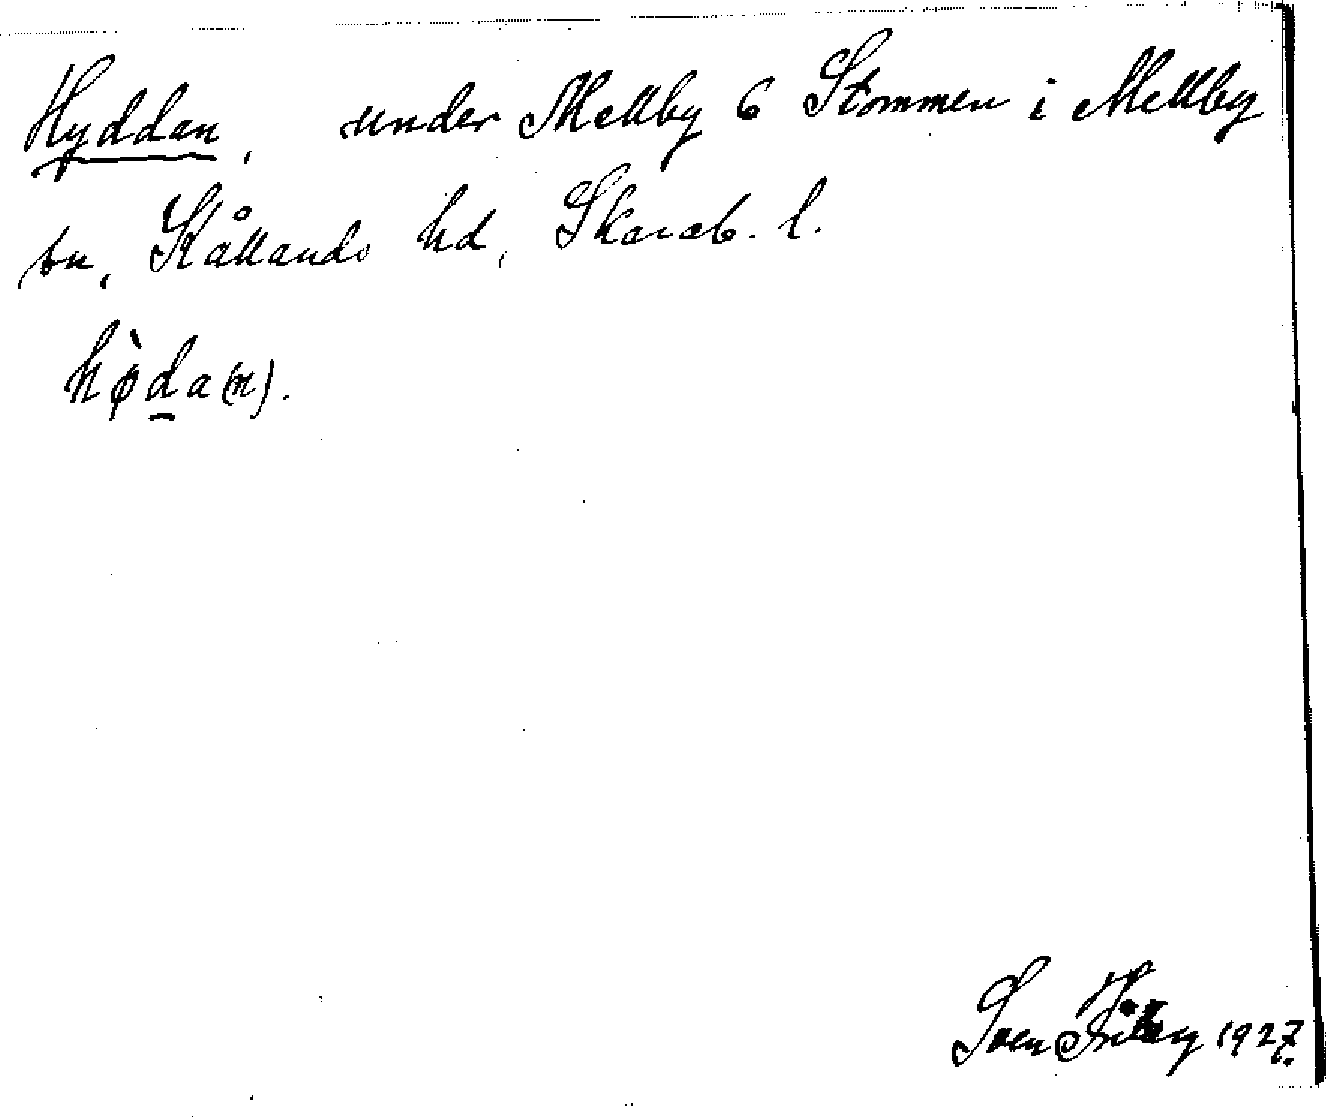 Hyddan, under Mellby 6 Stommen i Mellby
sn, Kållands hd, Skarab. l.
hø̀da(n).
Sven 1927.